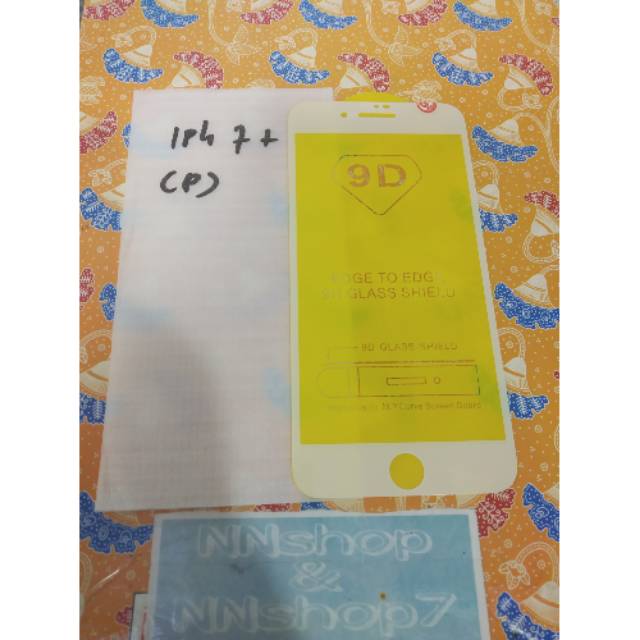 Iph 7+
(P)
9D
EDGE TO EDGE
9H GLASS SHIELD
9D GLASS SHIELD
Curve Screen Guard
NNshop
&
NNshop7